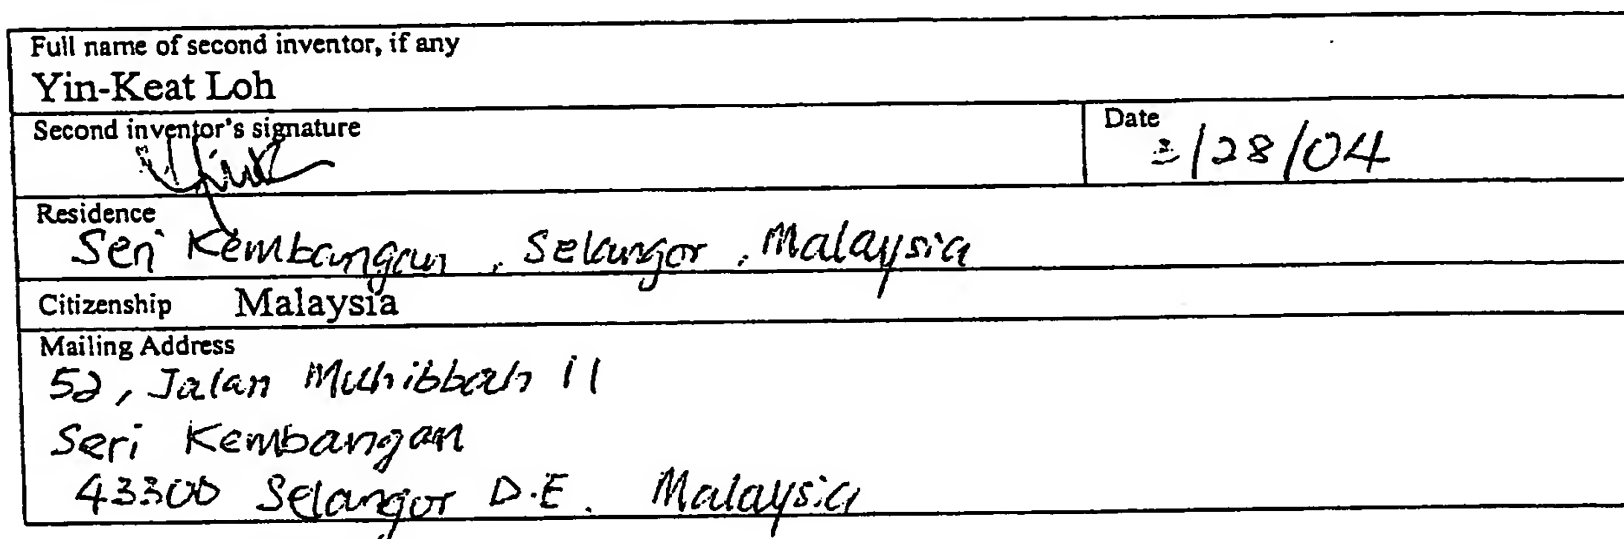 Full name of second inventor, if any
Yin-Keat Loh
Second inventor's signature
Date
/28/04
Residence
Seri Kembangan, Selangor, Malaysia
Citizenship Malaysia
Mailing Address
52, Jalan Muhibbah 11
Seri Kembangan
43300 Selangor D.E. Malaysia